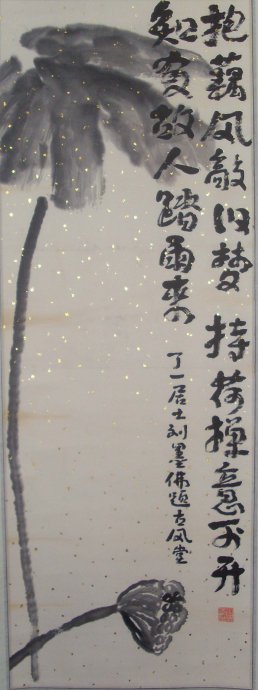 抱藕风敲旧梦持荷禅意开
故人踏雨来
了一居士刘墨佛题古风堂